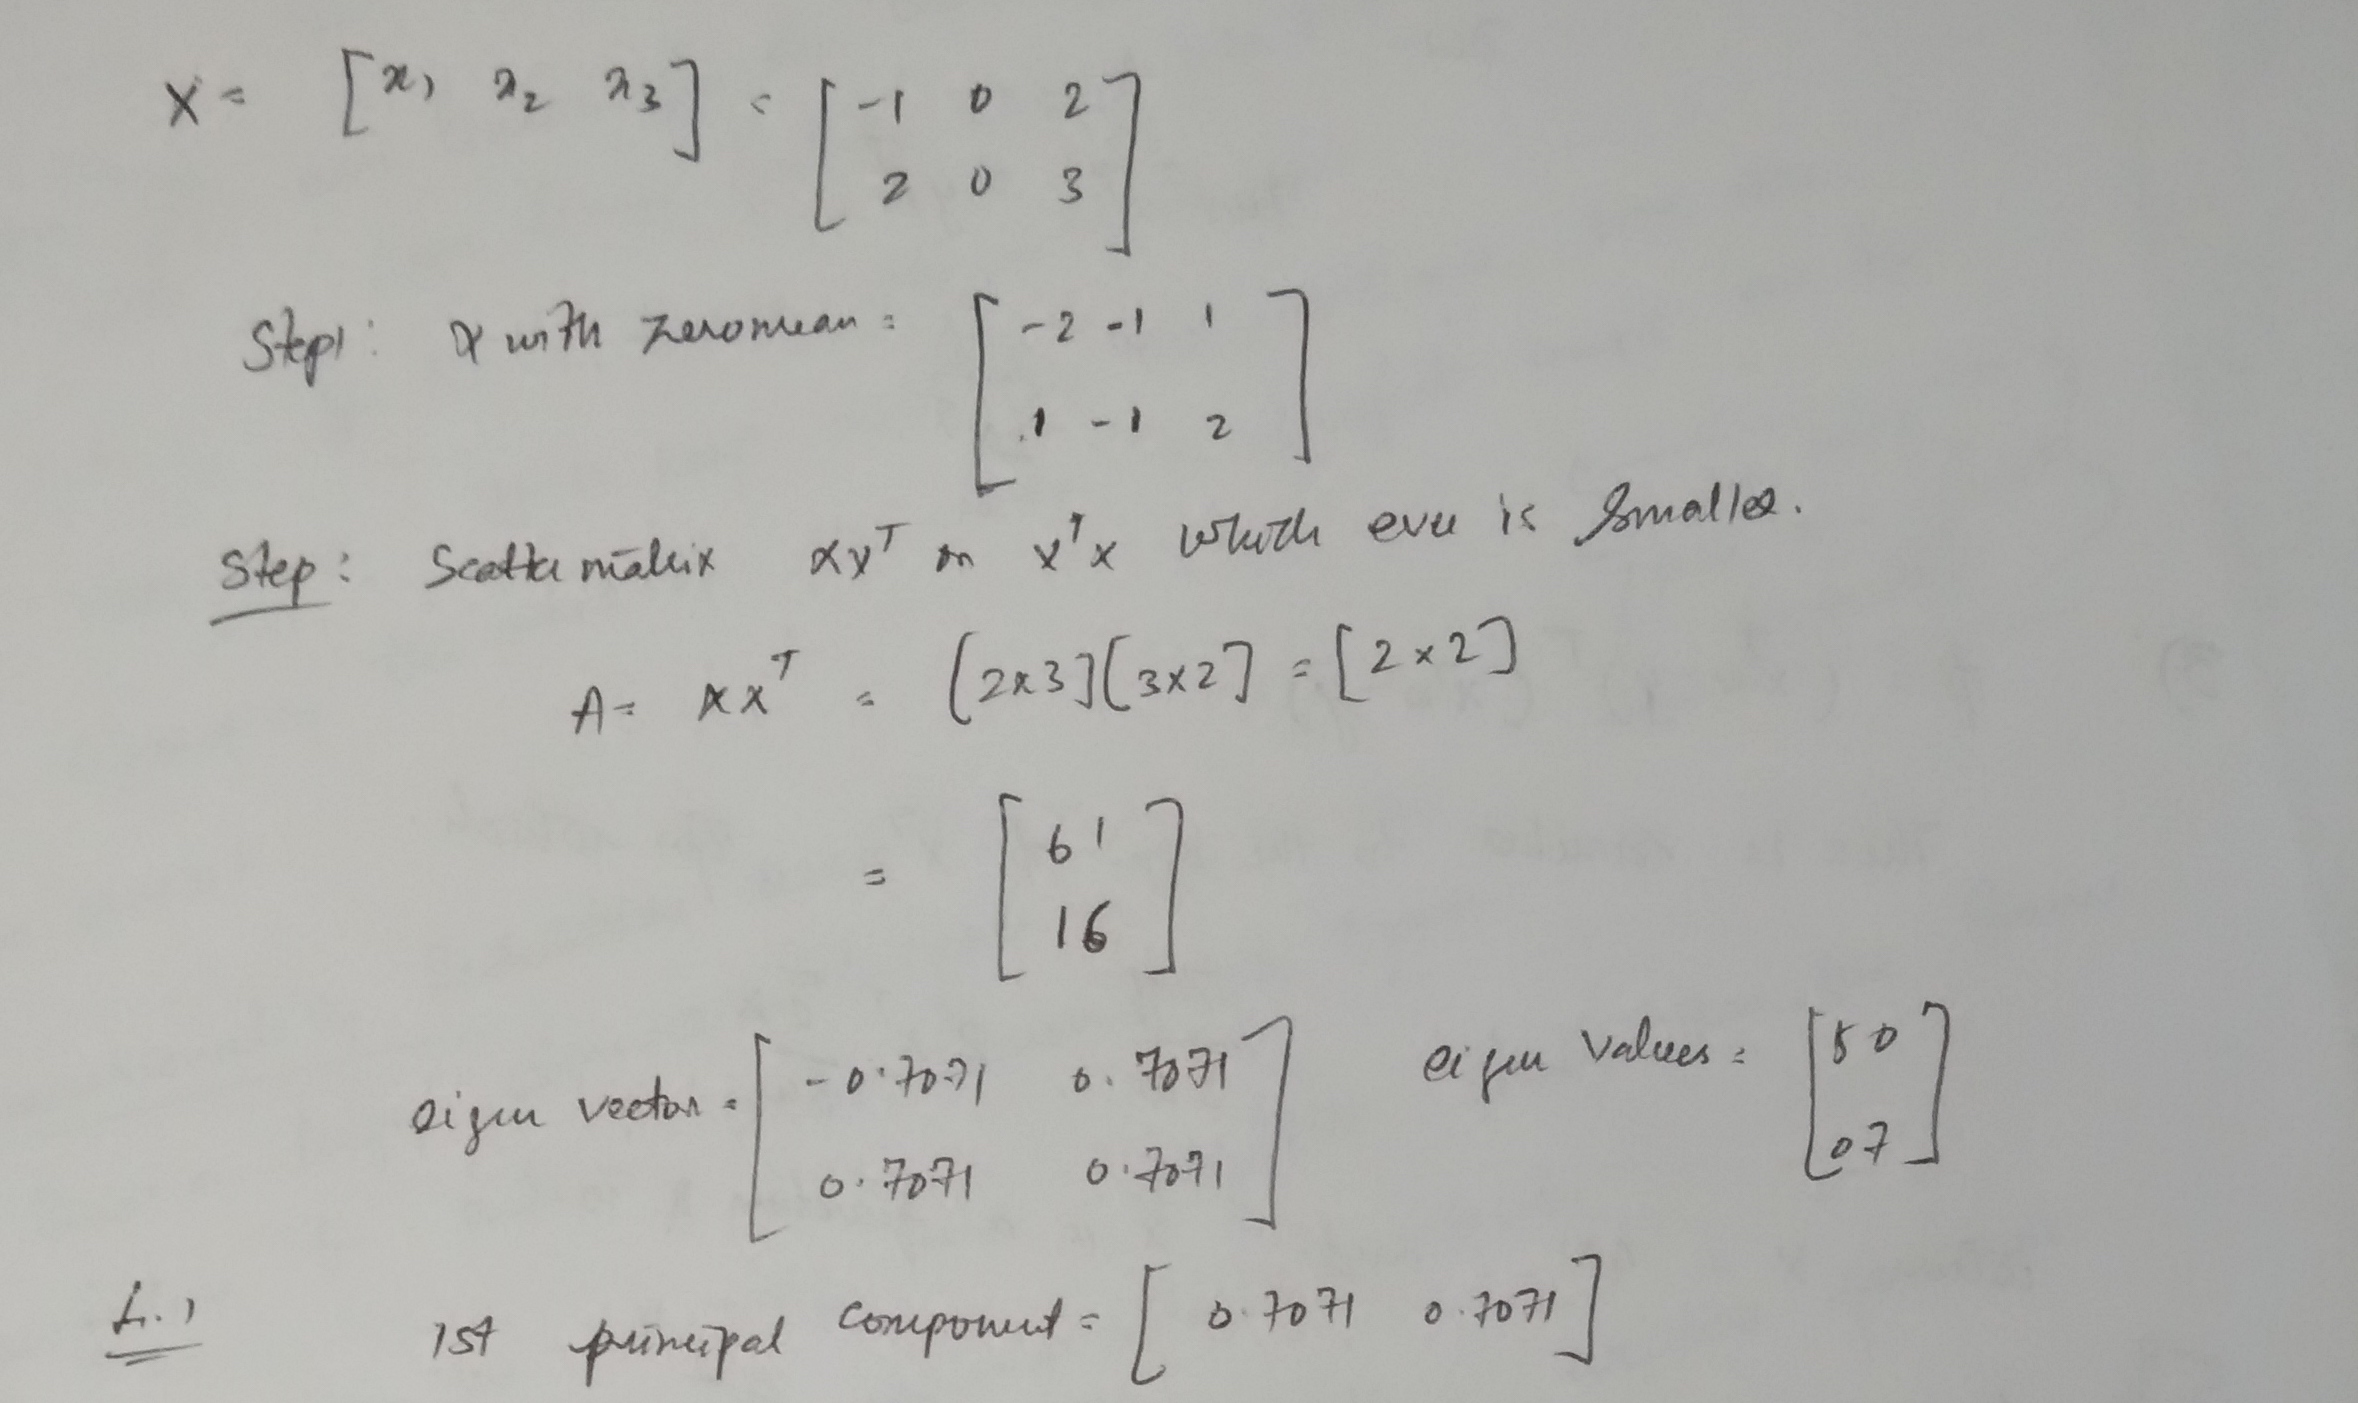 X = [x1 x2 x3] = [-1 0 2
2 0 3]
Step1: X with zeromean = [-2 -1 1
1 -1 2]
Step: Scatter matrix XX^T or X^TX which ever is smaller.
A = XX^T = [2x3][3x2] = [2x2]
= [6 1
1 6]
eigen vector = [-0.7071 0.7071
0.7071 0.7071]
eigen values = [5 0
0 7]
1st principal component = [0.7071 0.7071]